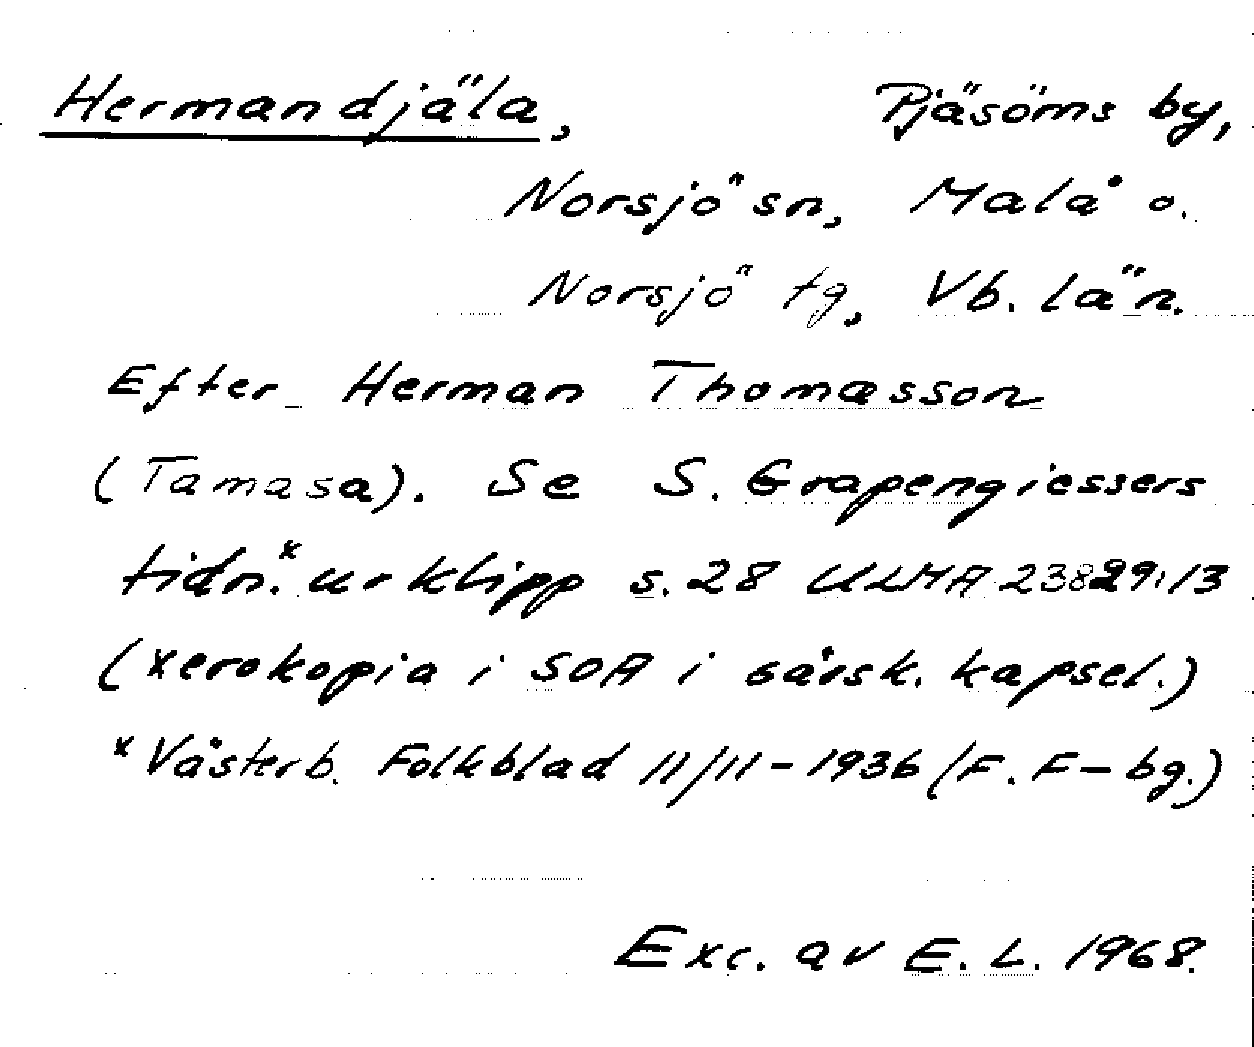 Hermandjäla, Pjäsöms by,
Norsjö sn, Malå o.
Norsjö tg, Vb. län.
Efter Herman Thomasson
(Tamasa). Se S. Grapengiessers
tidn.x urklipp s. 28 ULMA 23829:13
(xerokopia i SOA i särsk. kapsel.)
x Västerb. Folkblad 11/11-1936 (F. F-bg.)
Exc. av E. L. 1968.